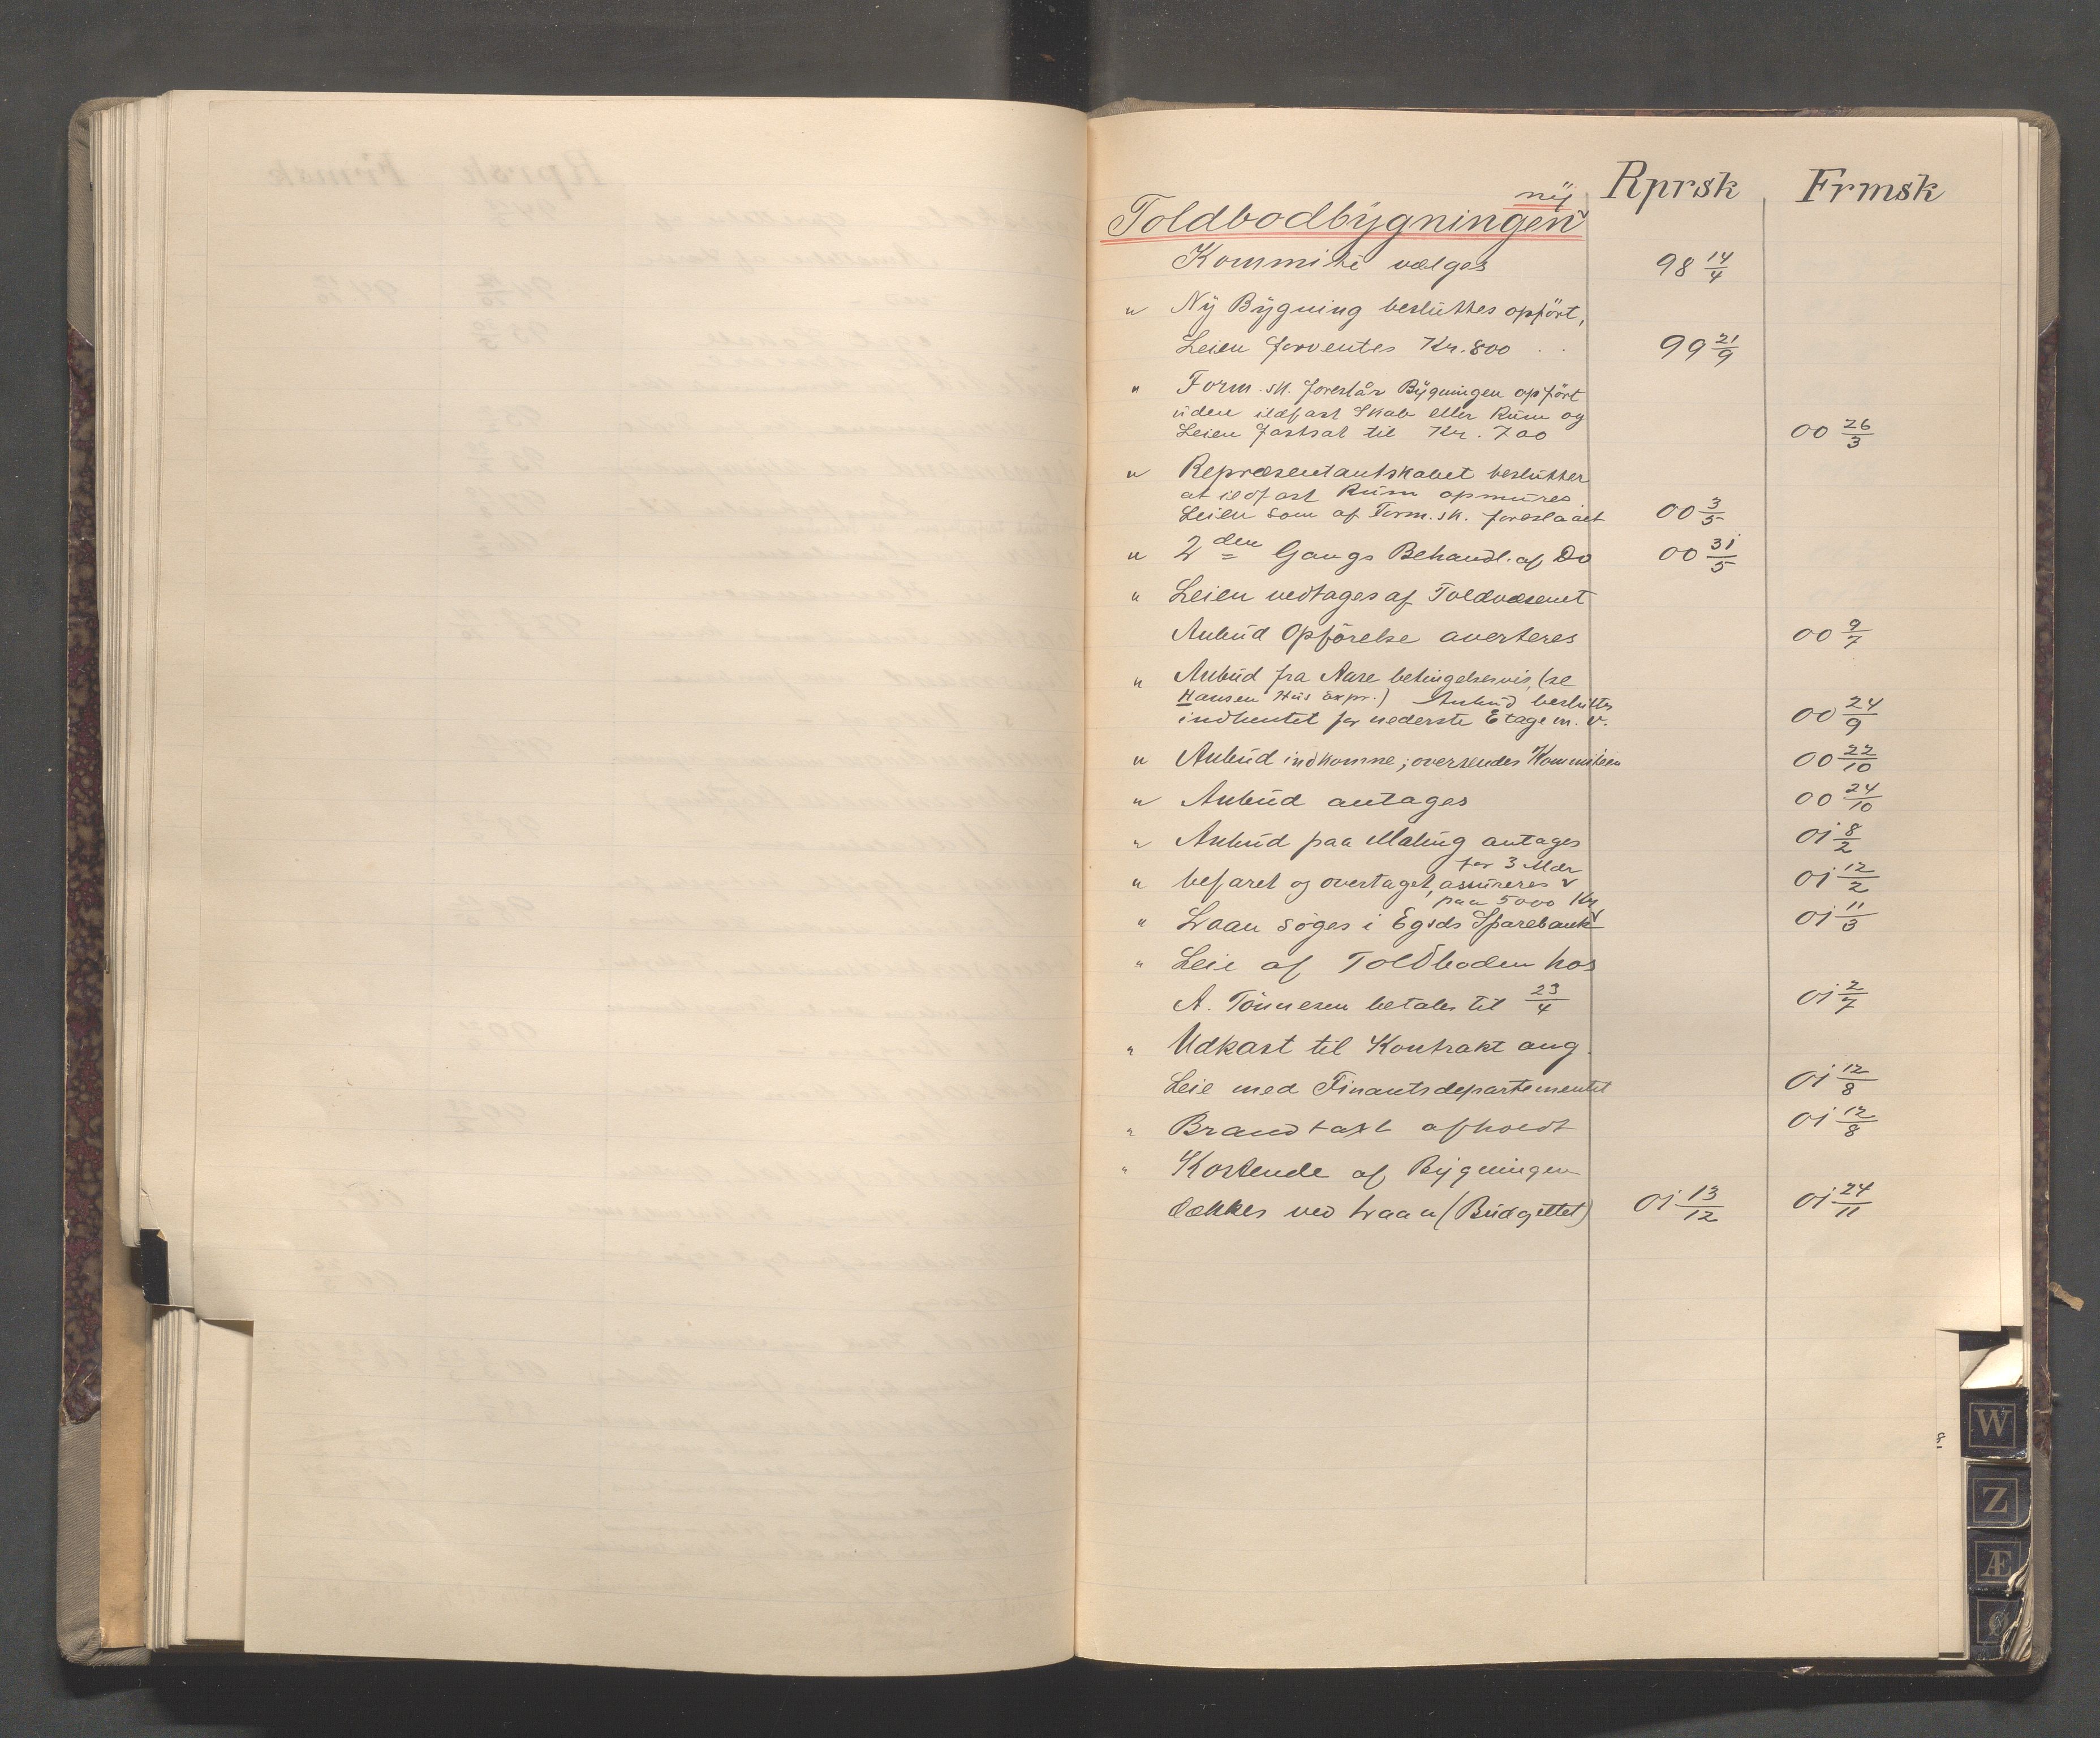 Rprsk Frmsk
ny
Toldbodbygningen
Kommité vælges 98 14/4
" Ny Bygning besluttes opført,
Leien forventes Kr. 800 . . 99 21/9
" Form.sk. foreslår Bygningen opført
uden ildfast Skab eller Rum og
Leien fastsat til Kr. 700 00 26/3
" Repræsentantskabet beslutter
at ildfast Rum opmures
Leien som af Form.sk. foreslaaet 00 3/5
" 2den Gangs Behandl. af Do 00 31/5
" Leien vedtages af Toldvæsenet
Anbud Opførelse averteres 00 9/7
" Anbud fra Aase betingelsesvis, (se
Hansen Hus Expr.) Anbud besluttes
indhentet for nederste Etage m. v. 00 24/9
" Anbud indkomne; oversendes Kommiteen 00 22/10
" Anbud antages 00 24/10
" Anbud paa Maling antages 01 8/2
for 3 Mdr
" befaret og overtaget, assureres 01 12/2
paa 5000 Kr
" Laan søges i Egsds Sparebank 01 11/3
" Leie af Toldboden hos
A. Tönnesen betales til 23/4 01 2/7
" Udkast til Kontrakt ang.
Leie med Finantsdepartementet 01 12/8
" Brandtaxt afholdt 01 12/8
" Kostende af Bygningen
dækkes ved Laan (Budgettet) 01 13/12 01 24/11
W
Z
Æ
Ø